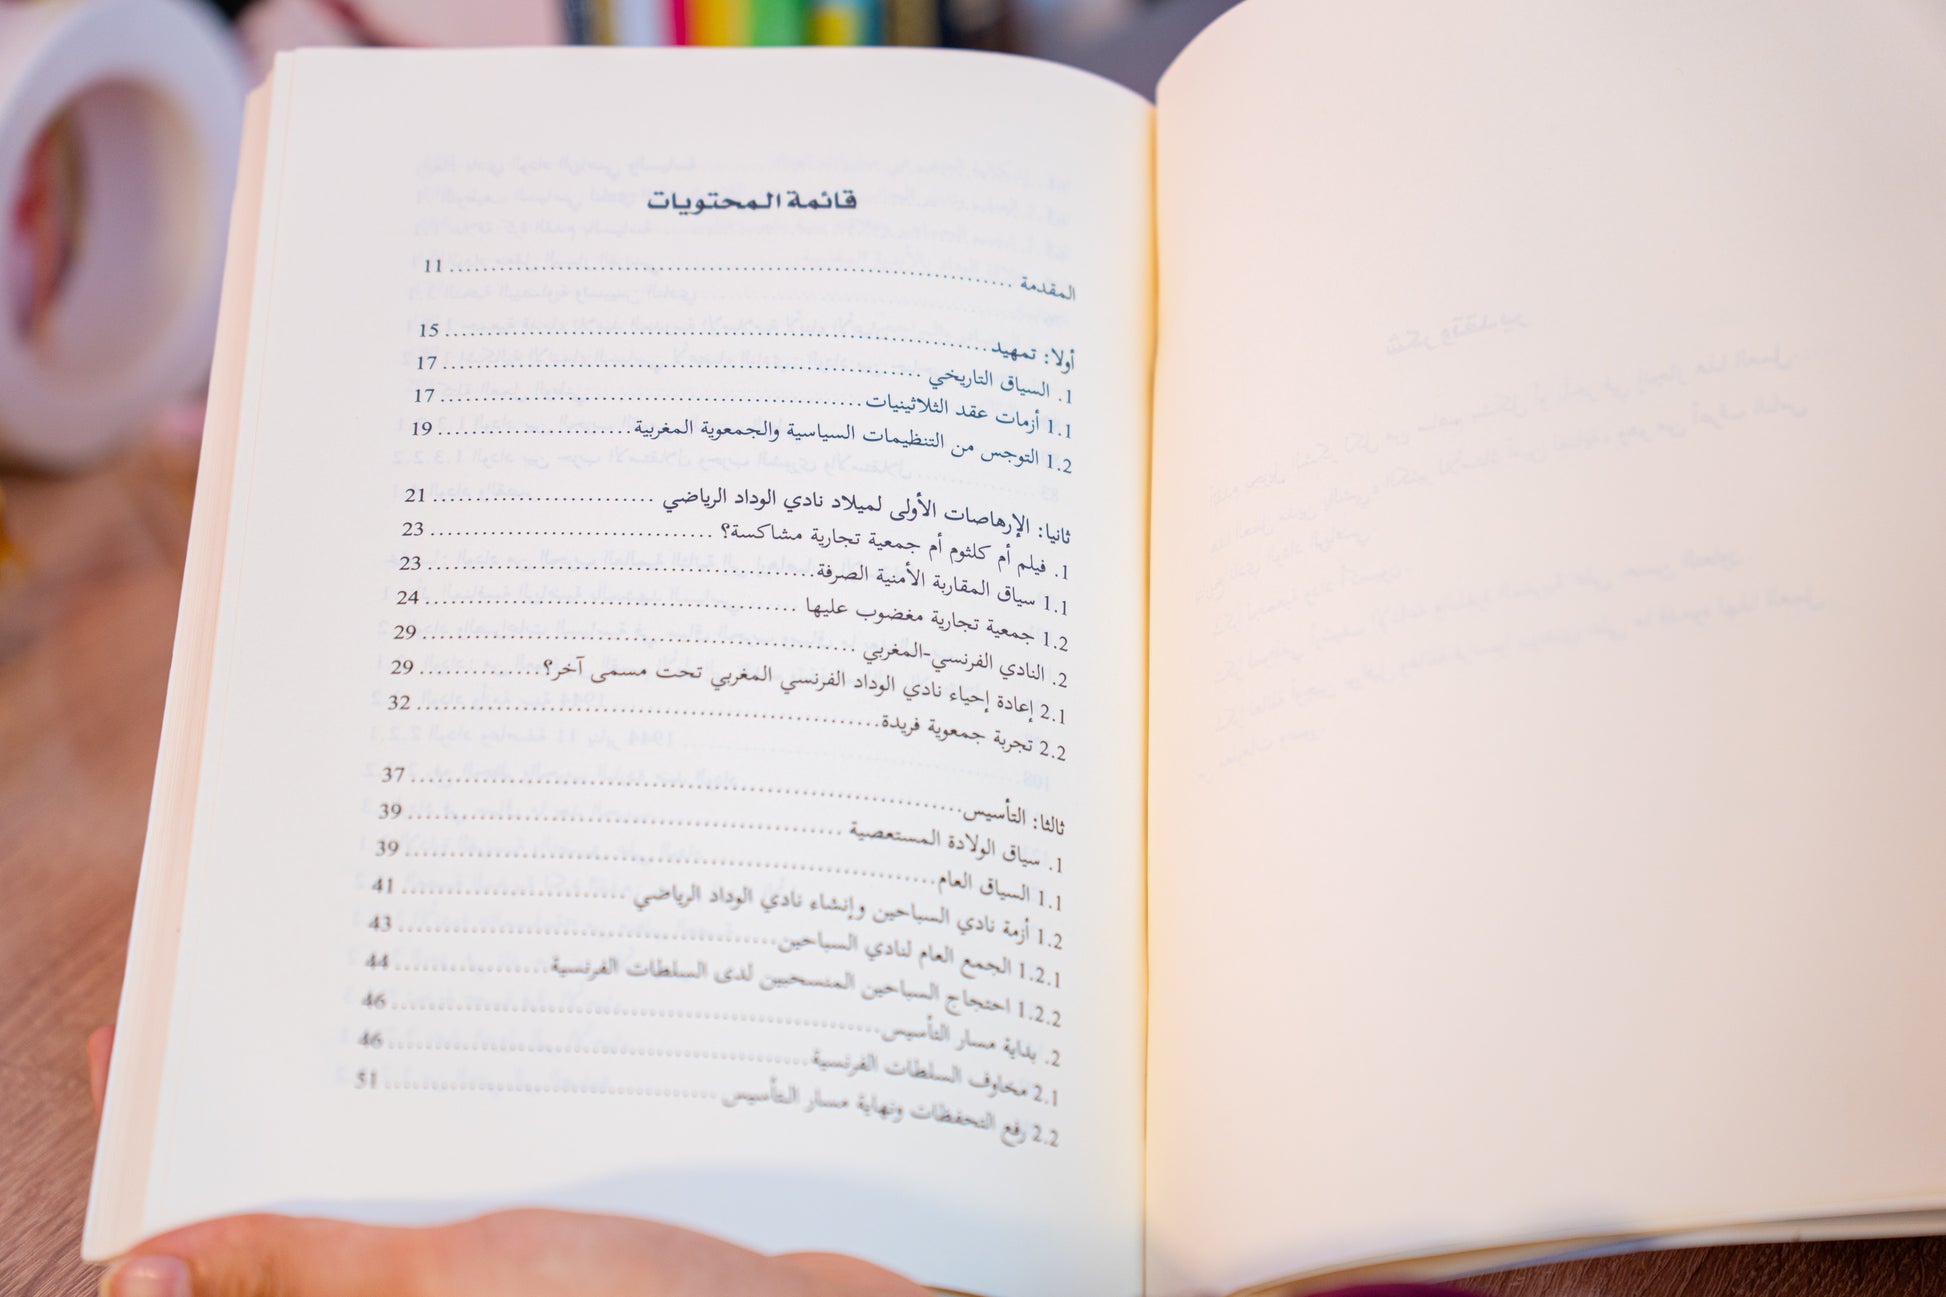 قائمة المحتويات
المقدمة ........ 11
أولا: تمهيد ........ 15
1. السياق التاريخي ........ 17
1.1 أزمات عقد الثلاثينيات ........ 17
1.2 التوجس من التنظيمات السياسية والجمعوية المغربية ........ 19
ثانيا: الإرهاصات الأولى لميلاد نادي الوداد الرياضي ........ 21
1. فيلم أم كلثوم أم جمعية تجارية مشاكسة؟ ........ 23
1.1 سياق المقاربة الأمنية الصرفة ........ 23
1.2 جمعية تجارية مغضوب عليها ........ 24
2. النادي الفرنسي-المغربي ........ 29
2.1 إعادة إحياء نادي الوداد الفرنسي المغربي تحت مسمى آخر؟ ........ 29
2.2 تجربة جمعوية فريدة ........ 32
ثالثا: التأسيس ........ 37
1. سياق الولادة المستعصية ........ 39
1.1 السياق العام ........ 39
1.2 أزمة نادي السباحين وإنشاء نادي الوداد الرياضي ........ 41
1.2.1 الجمع العام لنادي السباحين ........ 43
1.2.2 احتجاج السباحين المنسحبين لدى السلطات الفرنسية ........ 44
2. بداية مسار التأسيس ........ 46
2.1 مخاوف السلطات الفرنسية ........ 46
2.2 رفع التحفظات ونهاية مسار التأسيس ........ 51